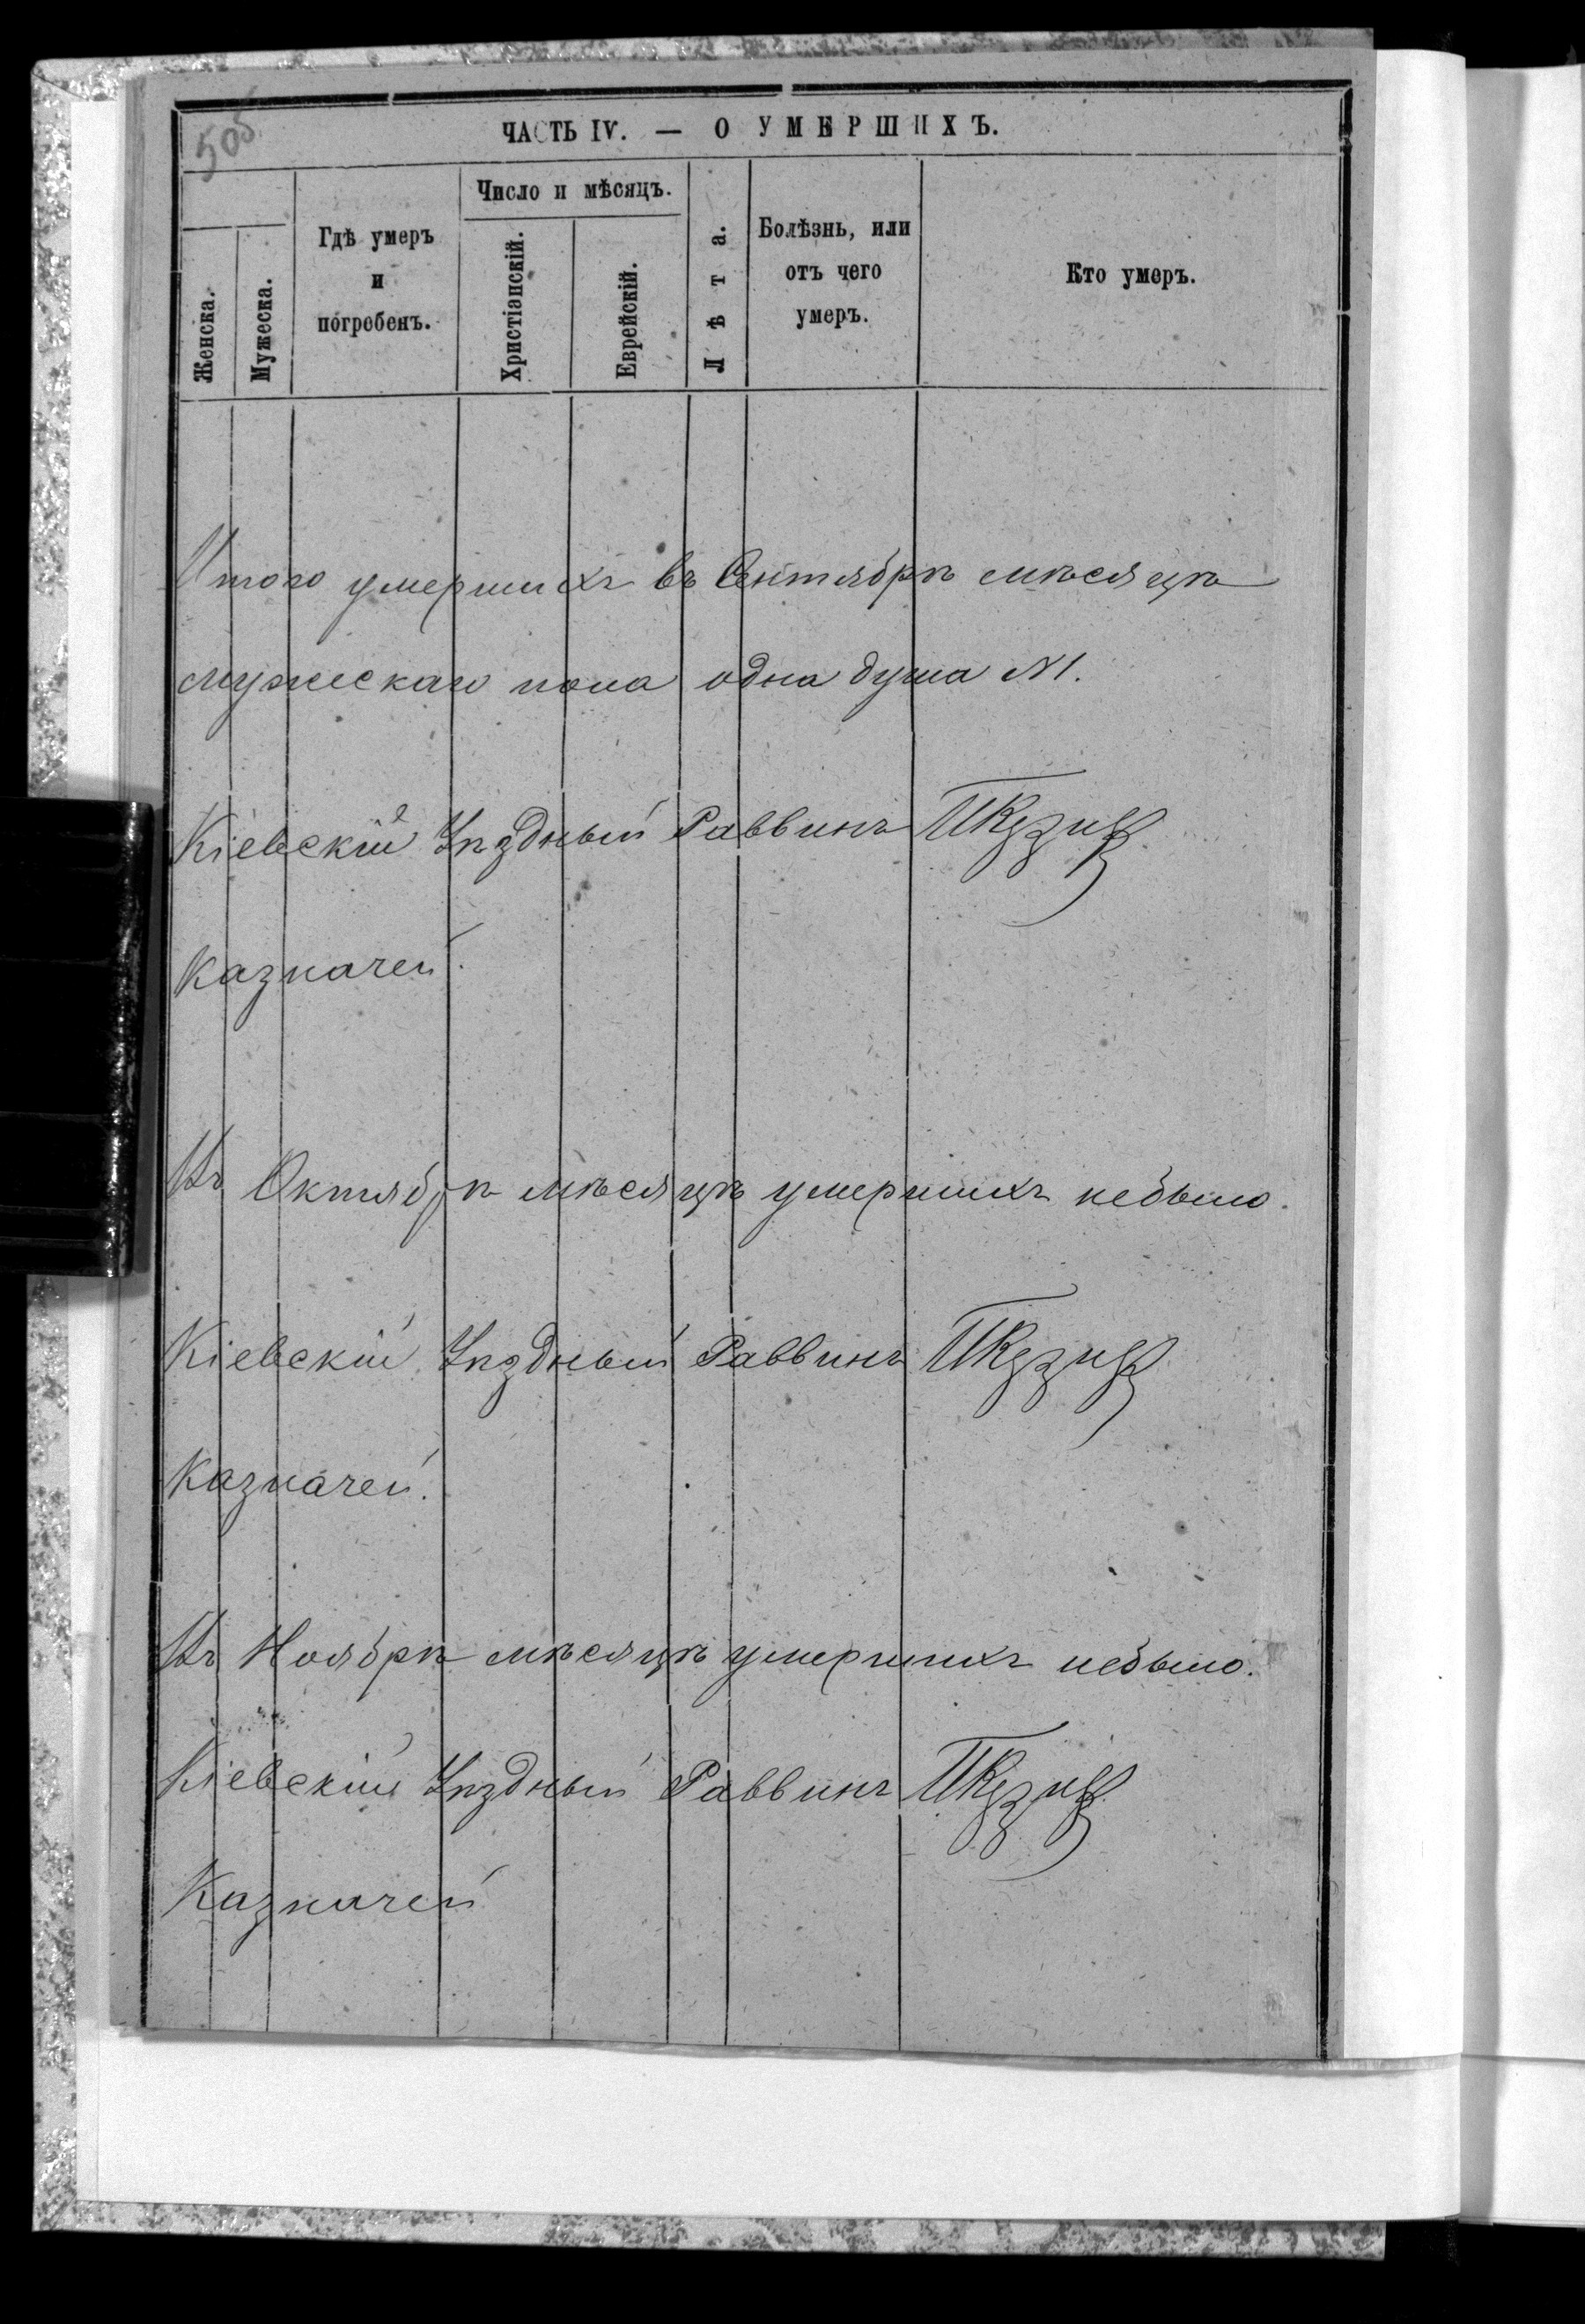 505
ЧАСТЬ IV. — О УМЕРШИХЪ.
Женска.
Мужеска.
Гдѣ умеръ
и
погребенъ.
Число и мѣсяцъ.
Христіанскій.
Еврейскій.
Лѣта.
Болѣзнь, или
отъ чего
умеръ.
Кто умеръ.
Итого умершихъ въ Сентябрѣ мѣсяцѣ
мужескаго пола одна душа №1.
Кіевскій Уѣздный Раввинъ
Казначей.
Въ Октябрѣ мѣсяцѣ умершихъ небыло.
Кіевскій Уѣздный Раввинъ
Казначей.
Въ Ноябрѣ мѣсяцѣ умершихъ небыло.
Кіевскій Уѣздный Раввинъ
Казначей